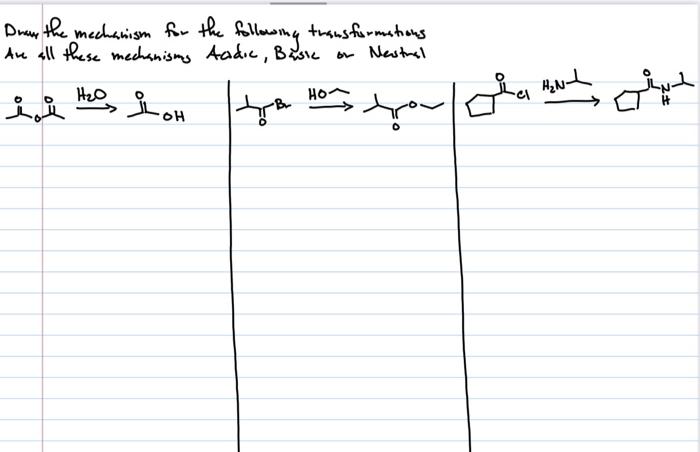 Draw the mechanism for the following transformations
Are all these mechanisms Acidic, Basic or Neutral
O O O H2O O OH
Br O HO O O
O Cl H2N O N H